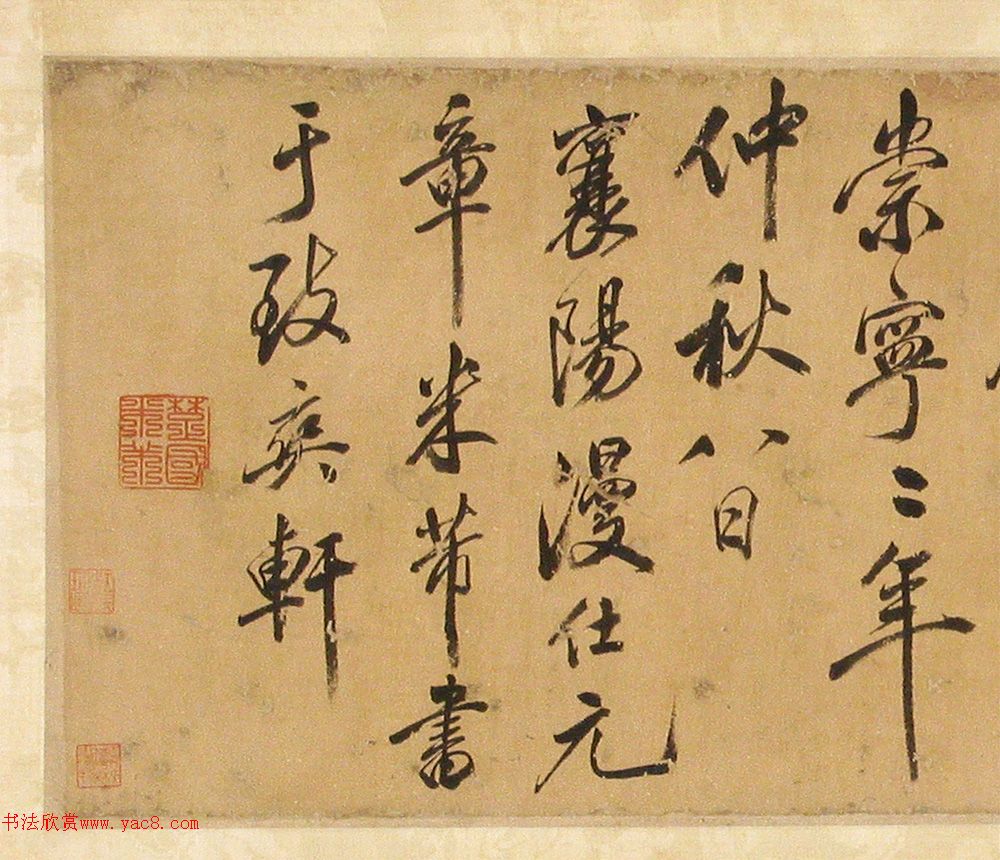 崇寧二年
仲秋八日
襄陽漫仕元
章米芾書
于致爽軒
楚國米芾
书法欣赏www.yac8.com